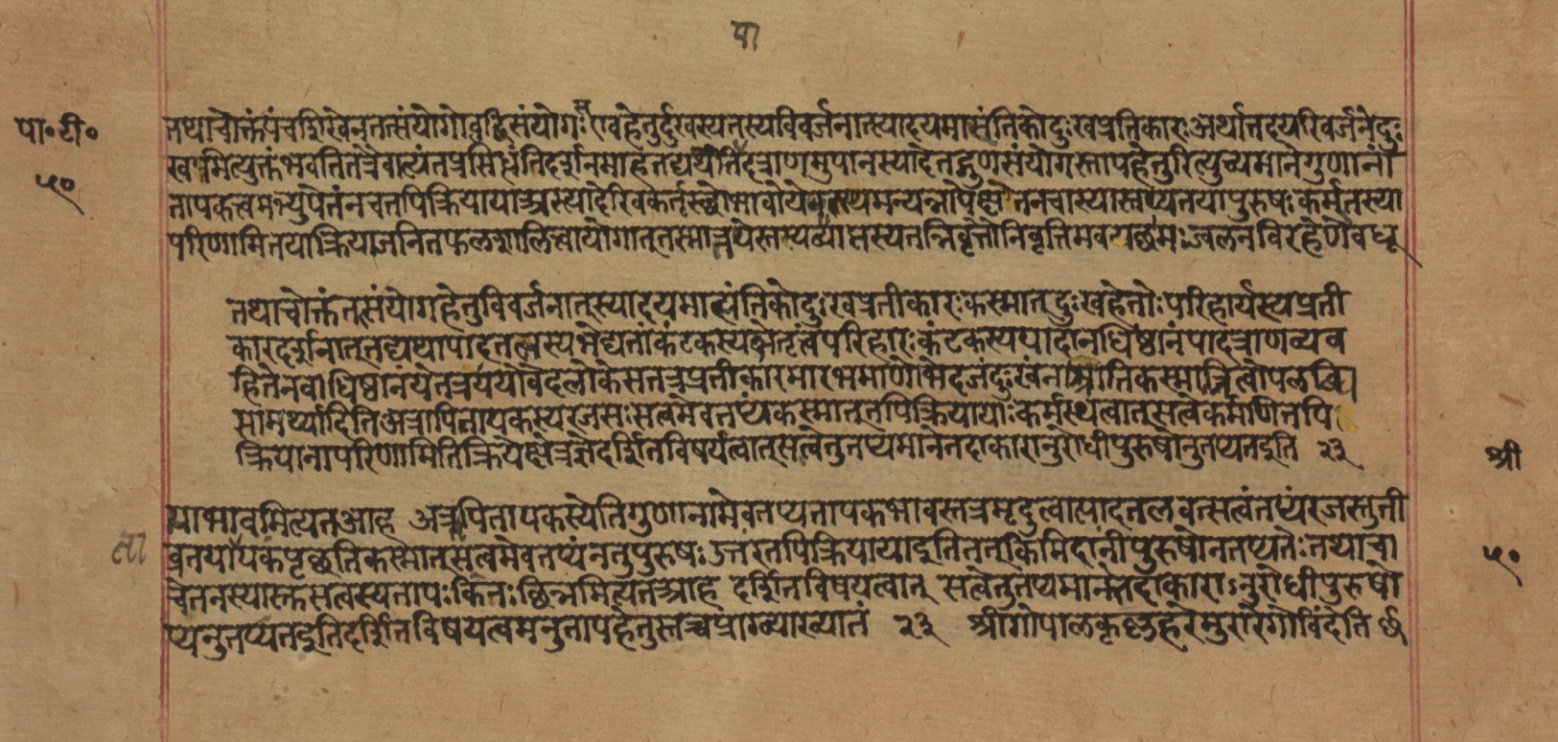 पा
पा॰टी॰
५०
तथाचोक्तंपंचशिखेनतत्संयोगोबुद्धिसंयोगःसएवहेतुर्दुखस्यतस्यविवर्जनात्स्यादयमात्संतिकोदुःखप्रतिकारःअर्थात्तदपरिवर्जनेदुः
खमित्युक्तंभवतितत्रैवात्यंतप्रसिद्धंनिदर्शनमाहतद्यथेतिपादत्राणमुपानत्स्यादेतद्गुणसंयोगस्तापहेतुरित्युच्यमानेगुणानां
तापकत्वमभ्युपेतंनचतपिक्रियायाअस्त्यादेरिवकर्तृस्थोभावोयेनतप्यमन्यन्नापेक्षेतनचास्यास्तप्यतयापुरुषःकर्मतस्या
परिणामितयाक्रियाजनितफलशालित्वायोगात्तस्मात्तापस्यतप्यव्याप्तस्यतन्निवृत्तौनिवृत्तिमवगच्छामःज्वलनविरहेणेवधू
तथाचोक्तंतत्संयोगहेतुविवर्जनात्स्यादयमात्यंतिकोदुःखप्रतीकारःकस्मात्दुःखहेतोःपरिहार्यस्यप्रती
कारदर्शनात्तद्यथापादतलस्यभेद्यताकंटकस्यभेत्तृत्वंपरिहारःकंटकस्यपादानधिष्ठानंपादत्राणव्यव
हितेनवाधिष्ठानंयेतत्त्रययोवेदलोकेसतत्रप्रतीकारमारभमाणोभेदजंदुःखंनाप्नोतिकस्मात्त्रित्वोपलब्धि
सामर्थ्यादितिअत्रापितापकस्यरजसःसत्वमेवतप्यंकस्मात्तपिक्रियायाःकर्मस्थत्वात्सत्वेकर्मणितपि
क्रियानापरिणामितिक्रियेक्षेत्रज्ञेदर्शितविषयत्वात्सत्वेतुतप्यमानेतदाकारानुरोधीपुरुषोनुतप्यतइति २३
श्री
याभावमित्यतआह अत्रापितापकस्येतिगुणानामेवतप्यतापकभावस्तत्रमृदुत्वात्पादतलवत्सत्वंतप्यंरजस्तुती
ता
व्रतयापकंपृच्छतिकस्मात्सत्वमेवतप्यंनतुपुरुषःउत्तरंतपिक्रियायाइतितत्किमिदानींपुरुषोनतप्यतेःतथाचा
५०
चेतनस्यास्तुसत्वस्यतापःकिंनःछिन्नमित्यतआह दर्शितविषयत्वात् सत्वेतुतप्यमानेतदाकाराऽनुरोधीपुरुषो
प्यनुतप्यतइतिदर्शितविषयत्वमनुतापहेतुस्तच्चप्राग्व्याख्यातं २३ श्रीगोपालकृष्णहरेमुरारेगोविंदेति